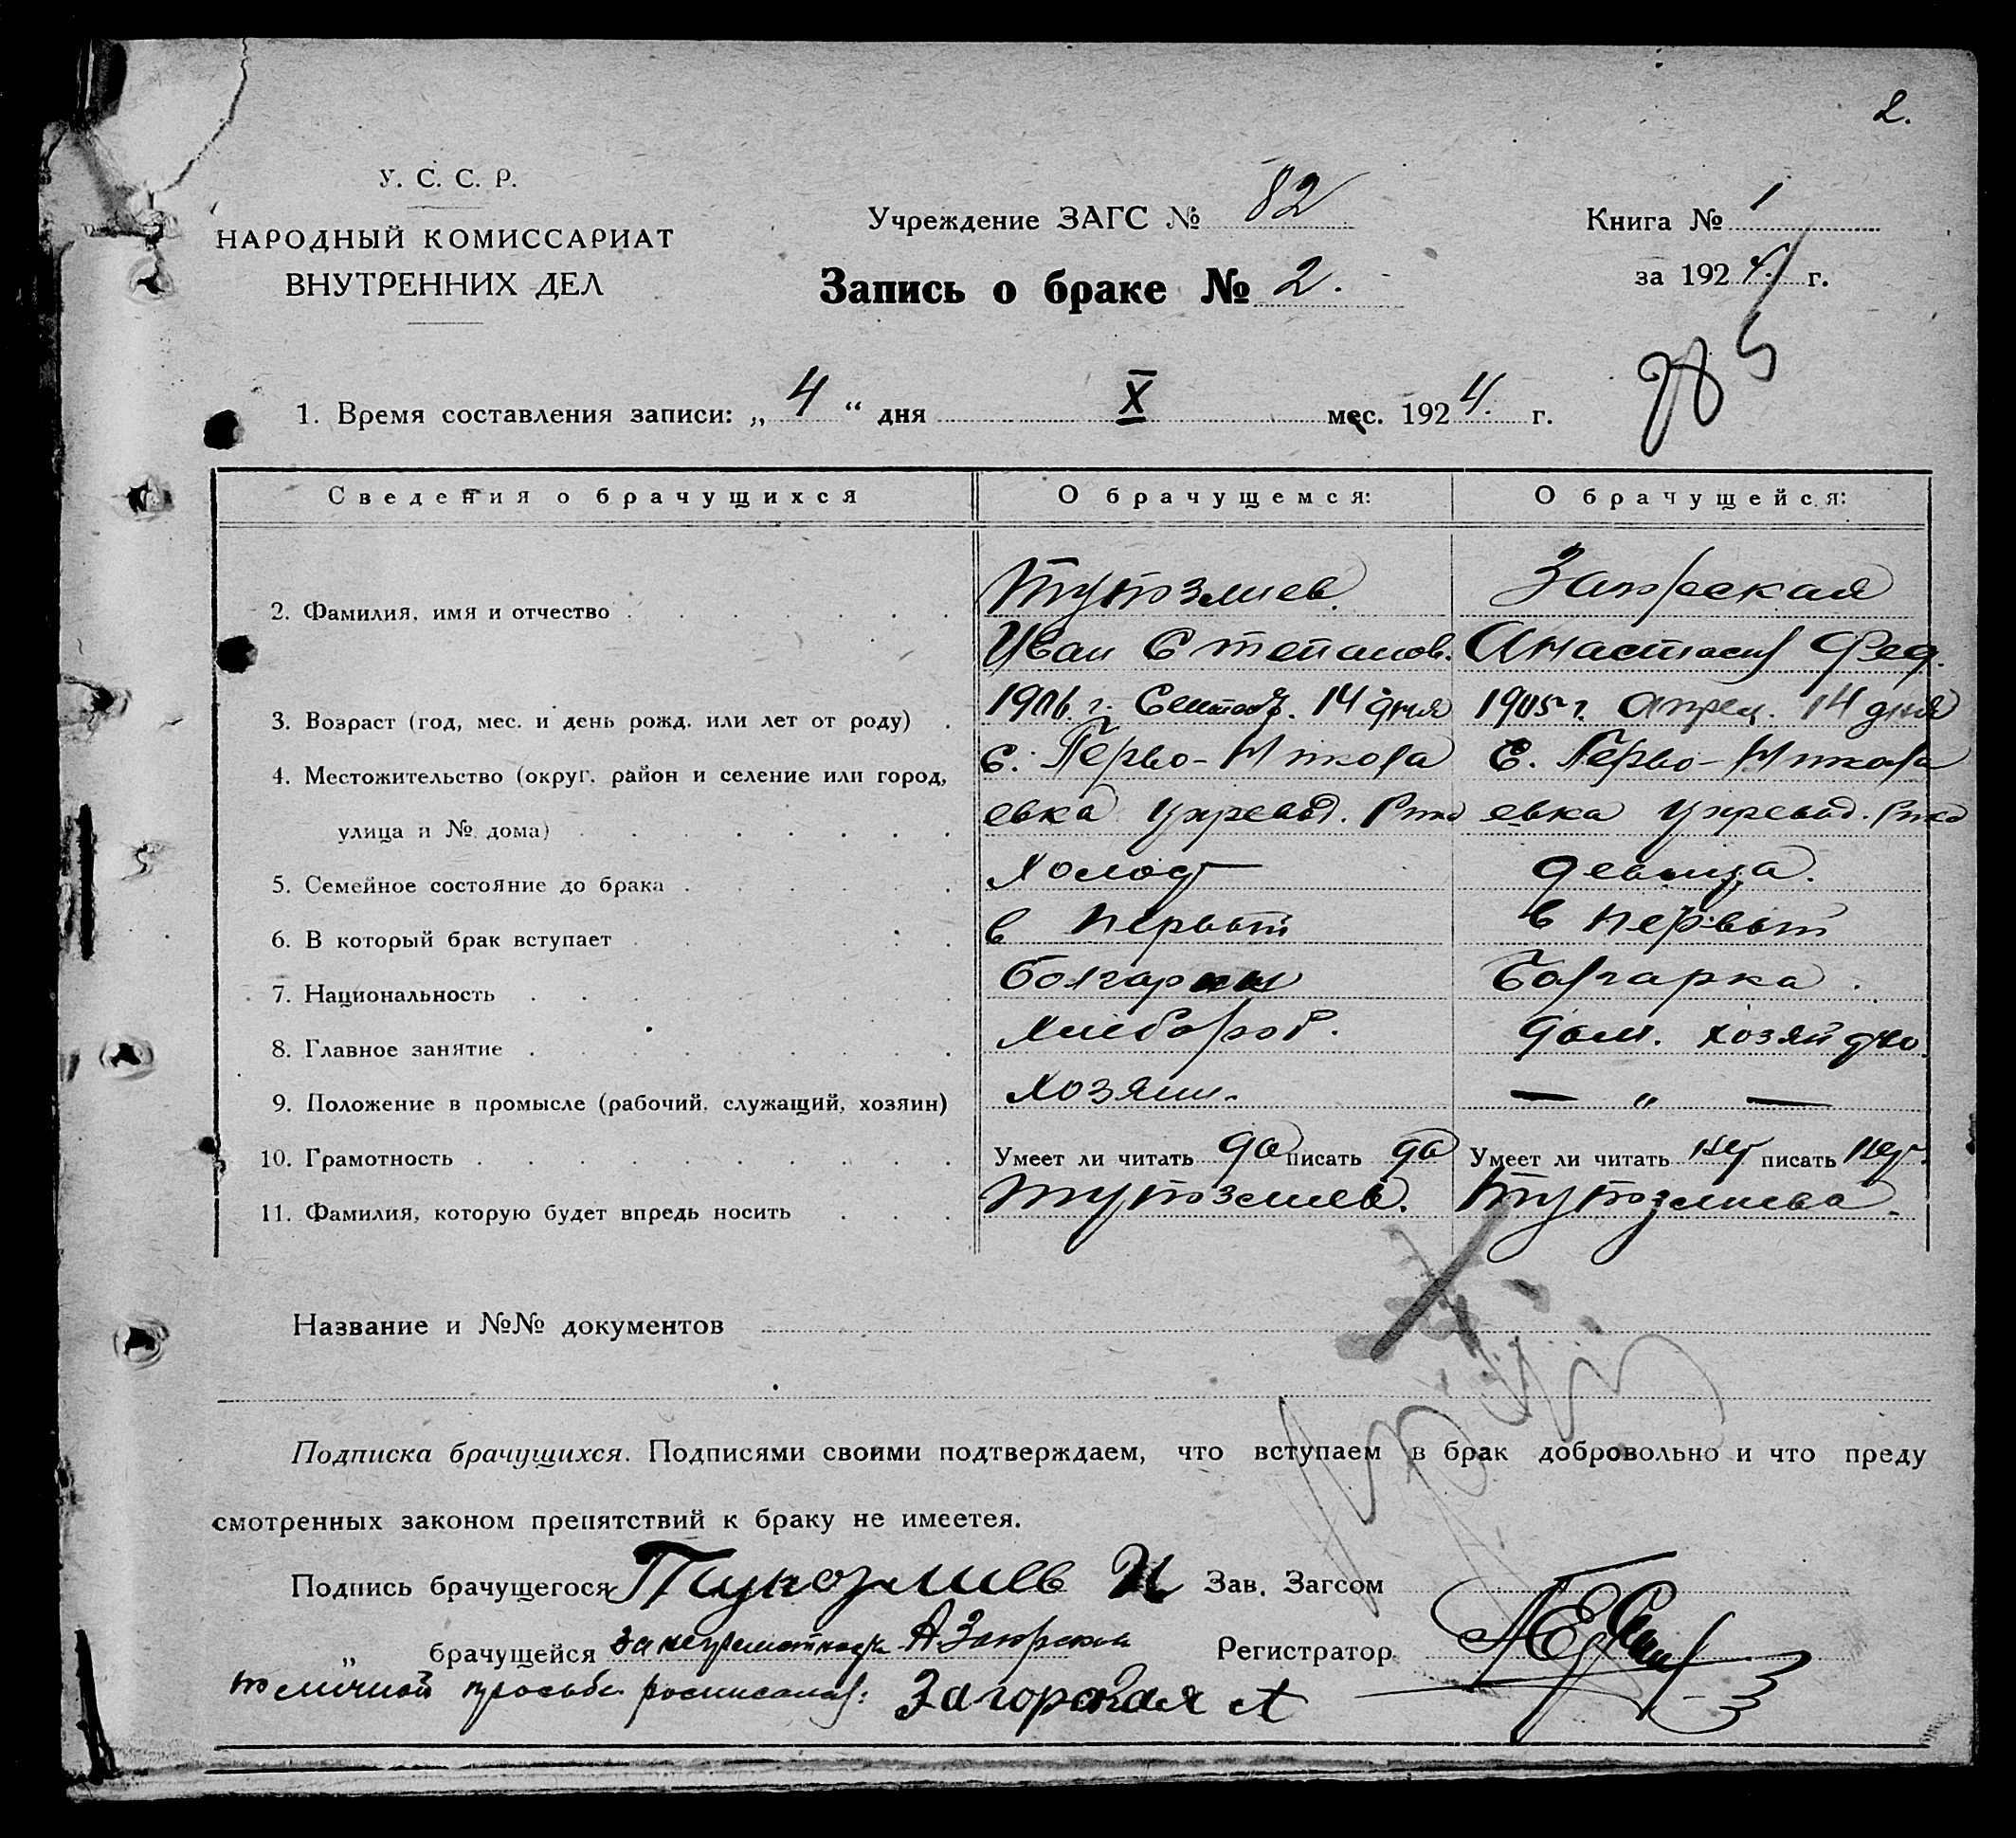 2.
У. С. С. Р.
НАРОДНЫЙ КОМИССАРИАТ
ВНУТРЕННИХ ДЕЛ
Учреждение ЗАГС № 82
Запись о браке № 2.
Книга № 1
за 1924 г.
1. Время составления записи: „ 4 “ дня X мес. 1924. г.
Сведения о брачущихся О брачущемся: О брачущейся:
2. Фамилия, имя и отчество Тупозлиев Загорская
Иван Степанов. Анастасия Фед.
3. Возраст (год, мес. и день рожд. или лет от роду) 1906 г. Сентяб. 14 дня 1905 г. Апрел. 14 дня
4. Местожительство (округ, район и селение или город, с. Перво-Никола С. Перво-Никола
улица и № дома) евка евка
5. Семейное состояние до брака Холост девица.
6. В который брак вступает в первый в первый
7. Национальность болгарин болгарка.
8. Главное занятие Хлебороб. Дом. хозяйство
9. Положение в промысле (рабочий, служащий, хозяин) Хозяин. — „ —
10. Грамотность Умеет ли читать да писать да Умеет ли читать нет писать нет.
11. Фамилия, которую будет впредь носить Тупозлиев. Тупозлиева.
Название и №№ документов
Подписка брачущихся. Подписями своими подтверждаем, что вступаем в брак добровольно и что преду
смотренных законом препятствий к браку не имеется.
Подпись брачущегося Тупозлиев И Зав. Загсом
„ брачущейся за неграмотную А. Загорскую Регистратор
по личной просьбе росписался: Загорская А